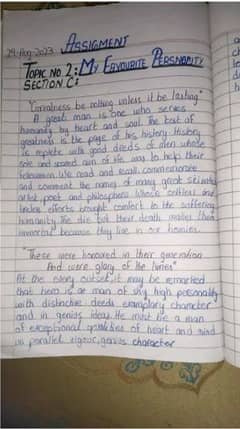 29-Aug-2023 ASSIGMENT
TOPIC NO 2: My FAVOURITE PERSNALITY
SECTION C:
"Greatness be nothing unless it be lasting"
A great man is one who serves
humanity by heart and soul. The test of
greatness is the page of his history. History
is replete with good deeds of men whose
sole and sacred aim of life was to help their
fellowmen. We read and recall, commemorate
and comment the names of many great scientist
artist, poet and philosphers whose and
tireless efforts brought comfort to the suffering
humanity. The die but their death makes them
immortal because they live in our
"These were honoured in their generation
And were glory of the times"
At the very outset, it may be remarked
that hero is a man of very high personality
with distinctive deeds exemplary character
and in genius ideas. He must be a man
of exceptional qualities of heart and mind
un parallel vigour, genius character